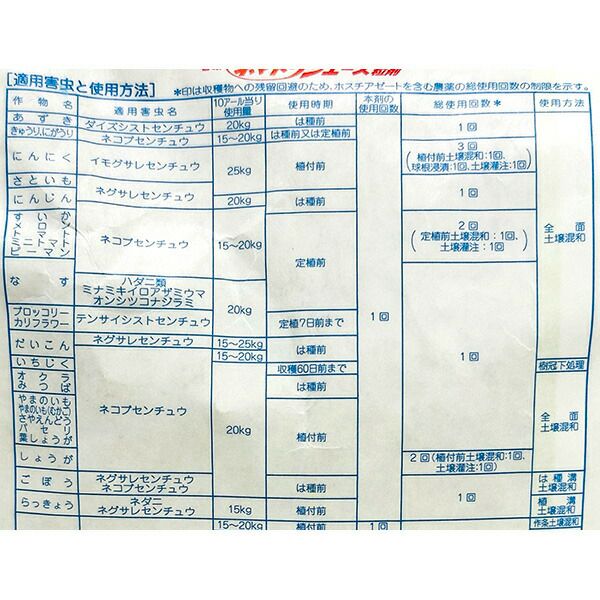 [適用害虫と使用方法]
＊印は収穫物への残留回避のため、ホスチアゼートを含む農薬の総使用回数の制限を示す。
作物名 適用害虫名 10アール当り使用量 使用時期 本剤の使用回数 総使用回数＊ 使用方法
あずき ダイズシストセンチュウ 20kg は種前 1回
きゅうり、にがうり ネコブセンチュウ 15〜20kg は種前又は定植前
にんにく イモグサレセンチュウ 25kg 植付前 3回
(植付前土壌混和:1回、
球根浸漬:1回、土壌灌注:1回)
さといも ネグサレセンチュウ 1回
にんじん 20kg は種前
すいか
メロン
トマト
ミニトマト
ピーマン
ネコブセンチュウ 15〜20kg 定植前 2回
(定植前土壌混和:1回、
土壌灌注:1回)
全面
土壌混和
なす ハダニ類
ミナミキイロアザミウマ
オンシツコナジラミ
20kg
ブロッコリー
カリフラワー
テンサイシストセンチュウ 定植7日前まで 1回
だいこん ネグサレセンチュウ 15〜25kg は種前 1回
15〜20kg
いちじく ネコブセンチュウ 20kg 収穫60日前まで 樹冠下処理
オクラ
みつば
は種前
やまのいも
やまのいも(むかご)
さやえんどう
パセリ
葉しょうが
植付前 全面
土壌混和
しょうが 2回(植付前土壌混和:1回、
土壌灌注:1回)
ごぼう ネグサレセンチュウ
ネコブセンチュウ
は種前 1回 は種溝
土壌混和
らっきょう ネダニ
ネグサレセンチュウ
15kg 植付前 植溝
土壌混和
15〜20kg 植付前 1回 作条土壌混和